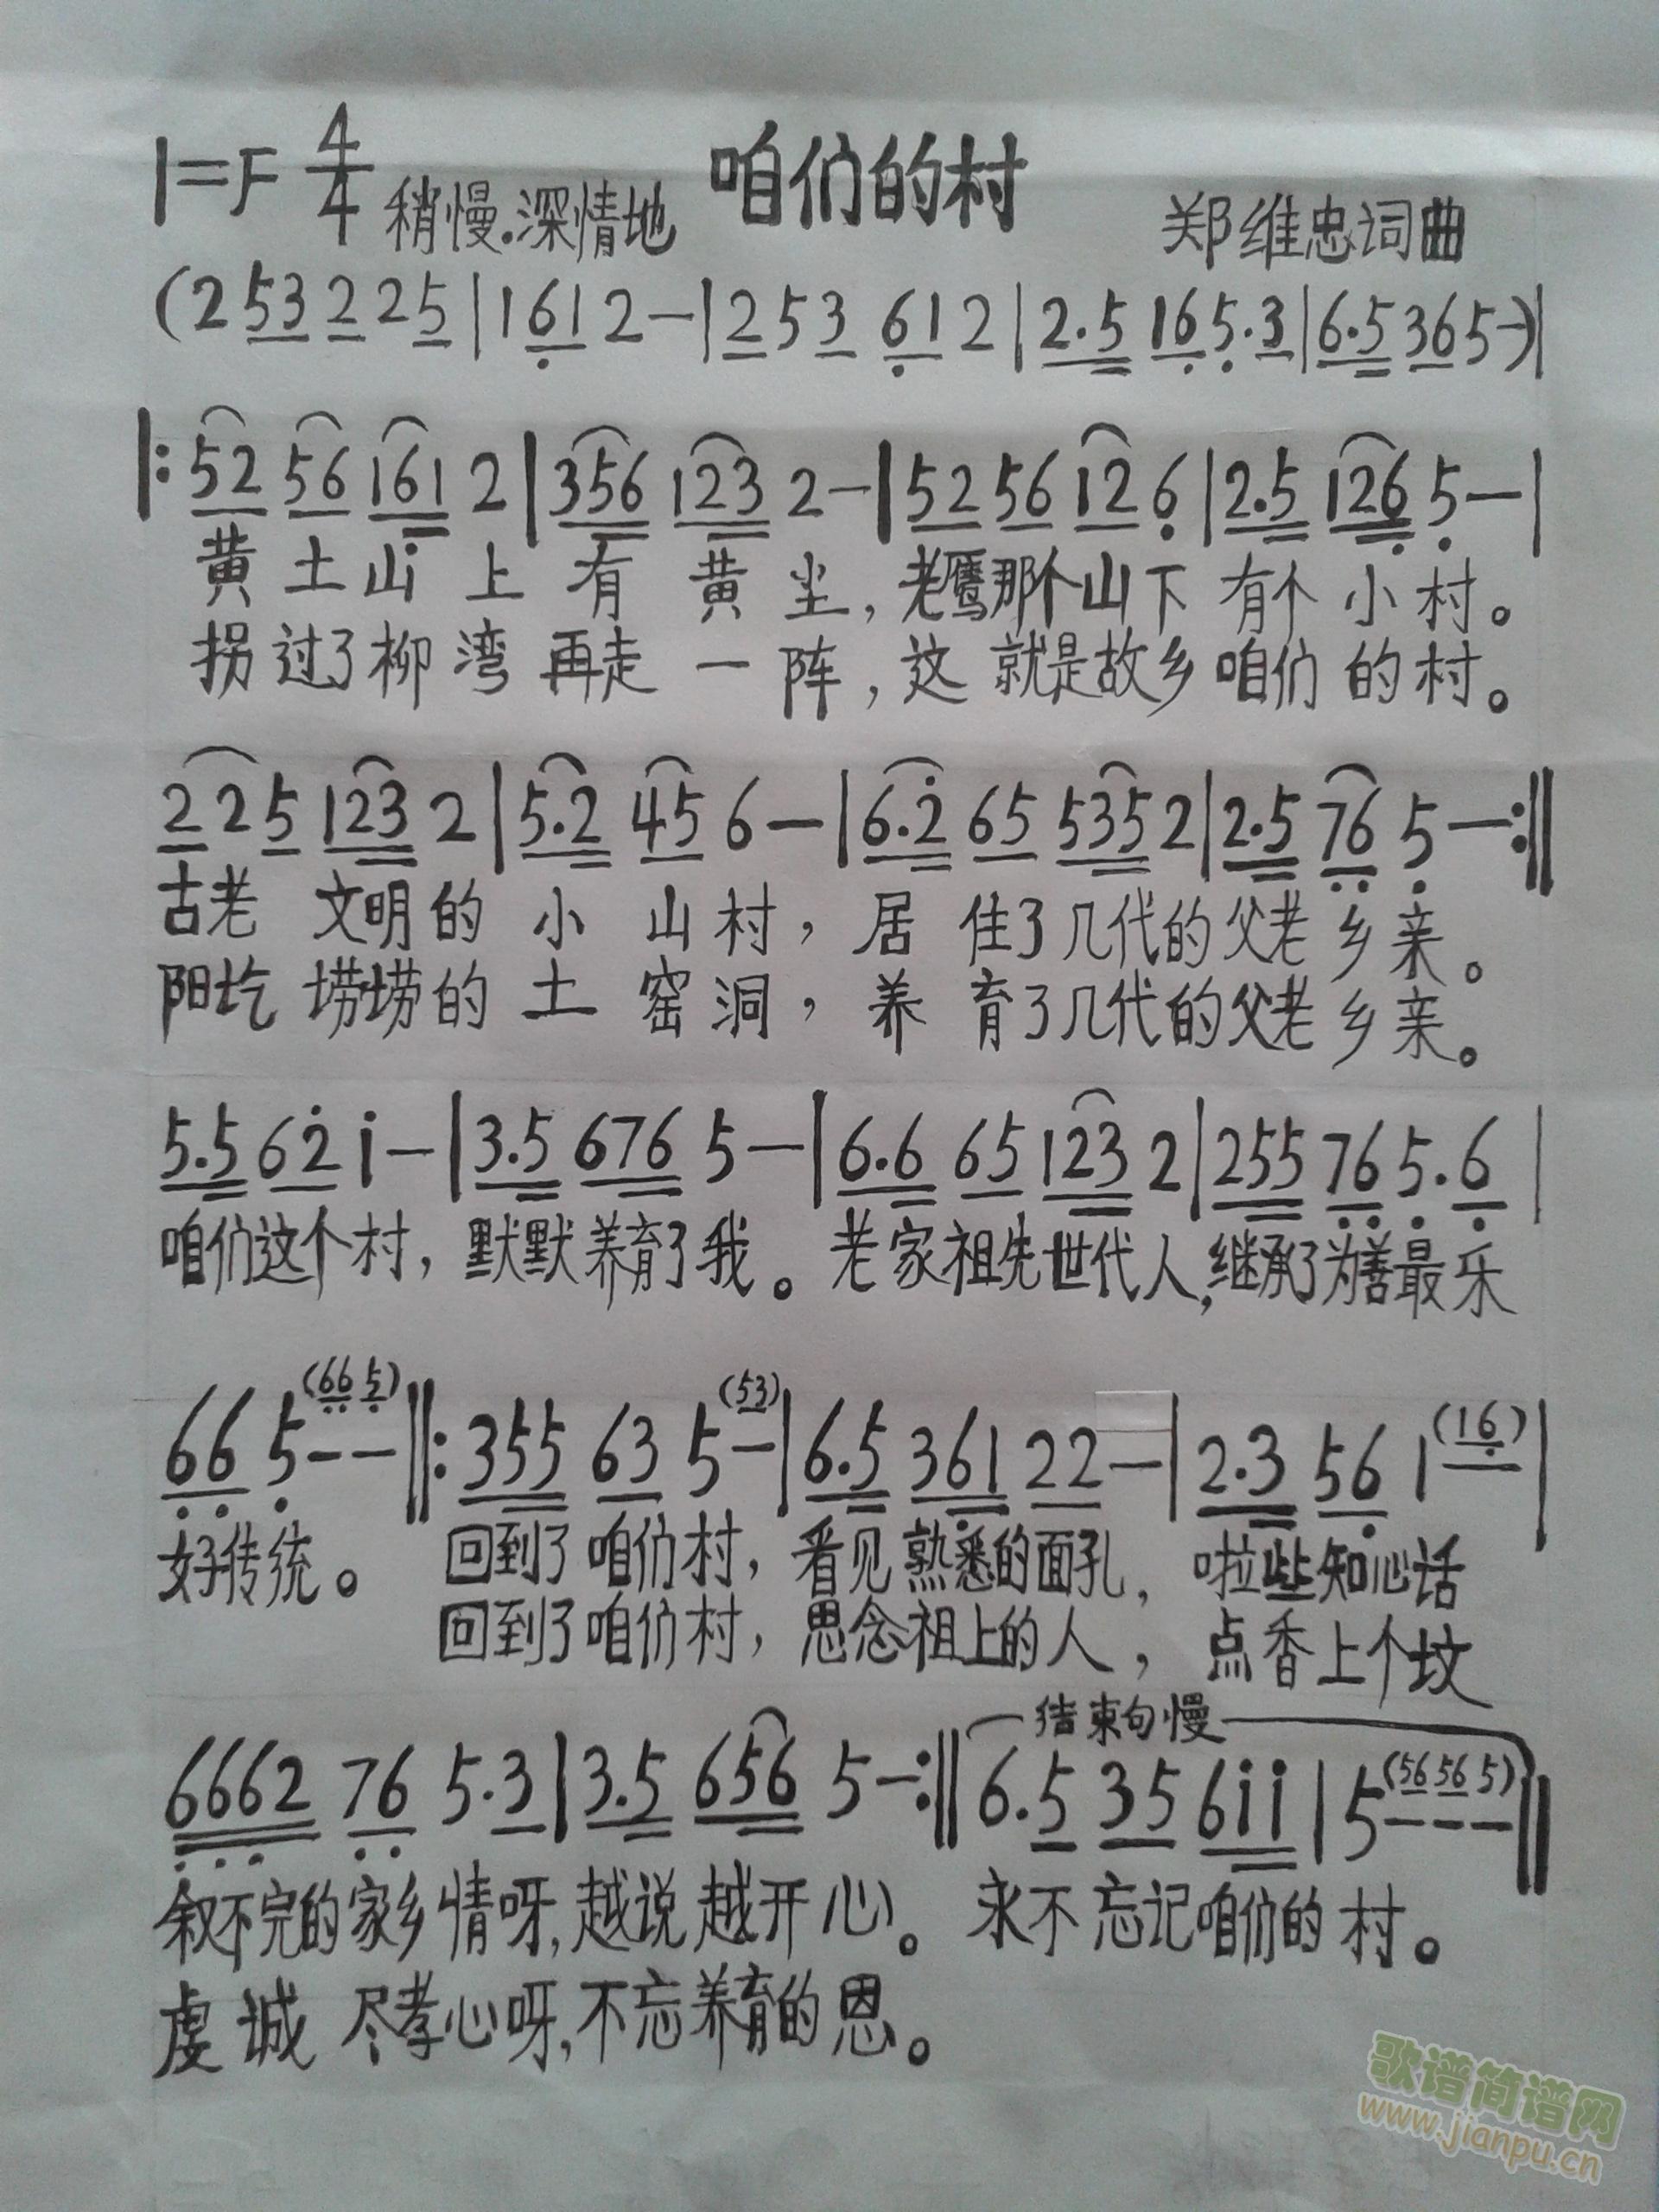 1=F 4/4 稍慢.深情地 咱们的村 郑维忠词曲
(2 53 2 25|1 61 2—|2 53 61 2|2.5 16 5.3|6.5 36 5—)|
|:52 56 161 2|356 123 2—|52 56 12 6|2.5 126 5—|
黄土山上有黄尘,老鹰那个山下有个小村。
拐过了柳湾再走一阵,这就是故乡咱们的村。
2 2 5 123 2|5.2 45 6—|6.2 65 535 2|2.5 76 5—:||
古老文明的小山村,居住了几代的父老乡亲。
阳圪塄塄的土窑洞,养育了几代的父老乡亲。
5.5 62 i—|3.5 676 5—|6.6 65 123 2|255 76 5.6|
咱们这个村,默默养育了我。老家祖先世代人,继承了为善最乐
66 5(66 5)——||:355 63 5(53)—|6.5 361 22—|2.3 56 1(16)|
好传统。回到了咱们村,看见熟悉的面孔,啦些知心话
回到了咱们村,思念祖上的人,点香上个坟
结束句慢
6662 76 5.3|3.5 656 5—:||6.5 35 6ii|5(56 56 5)———||
叙不完的家乡情呀,越说越开心。永不忘记咱们的村。
虔诚尽孝心呀,不忘养育的恩。
歌谱简谱网
www.jianpu.cn